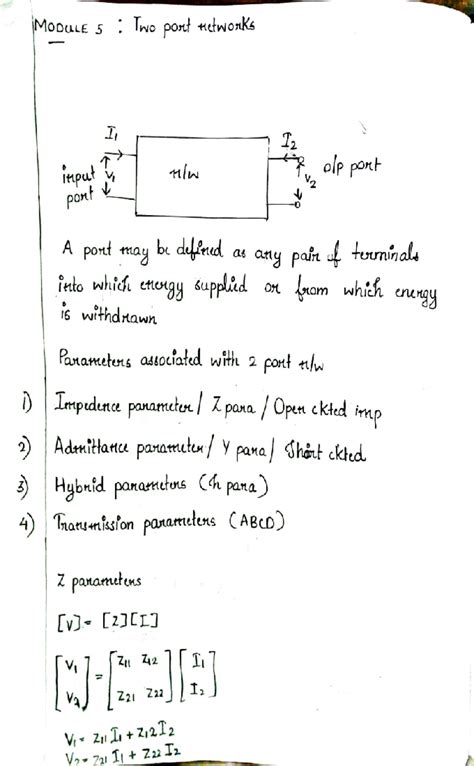 MODULE 5 : Two port networks
I1
I2
input port
V1
n/w
V2
o/p port
A port may be defined as any pair of terminals
into which energy supplied or from which energy
is withdrawn
Parameters associated with 2 port n/w
1) Impedence parameter / Z para / Open ckted imp
2) Admittance parameter / Y para / Short ckted
3) Hybrid parameters (h para)
4) Transmission parameters (ABCD)
Z parameters
[V] = [Z][I]
[V1 V2] = [Z11 Z12 Z21 Z22] [I1 I2]
V1 = Z11 I1 + Z12 I2
V2 = Z21 I1 + Z22 I2